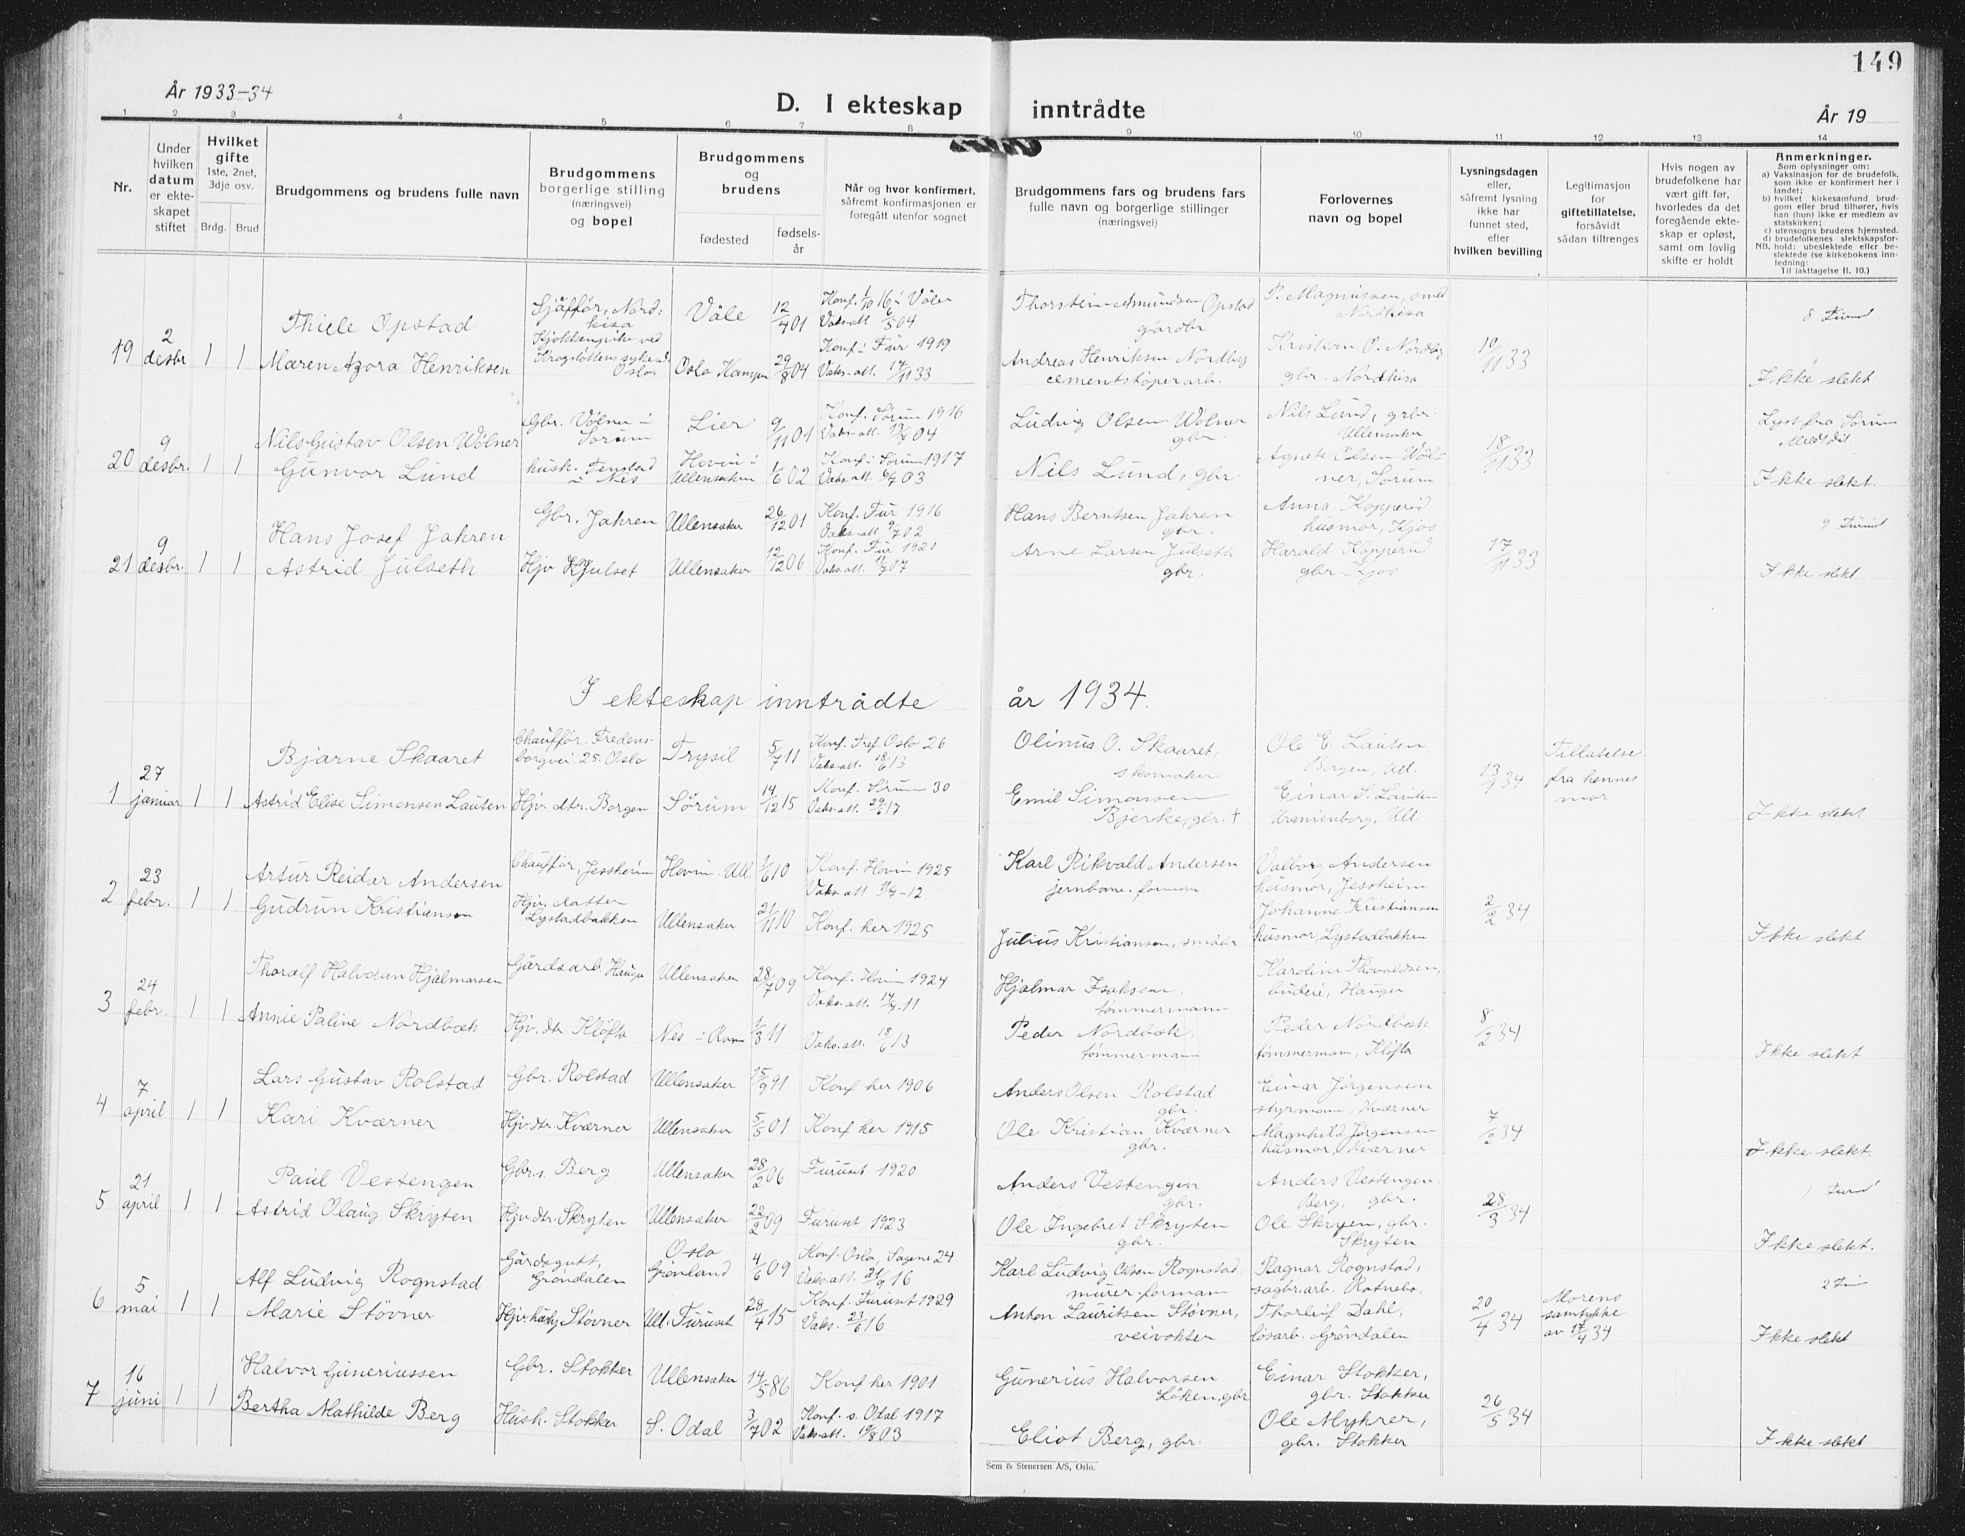 149
År 1933-34
D. I ekteskap inntrådte
År 19
1 2 3 4 5 6 7 8 9 10 11 12 13 14
Nr.
Under hvilken datum er ekteskapet stiftet
Hvilket gifte 1ste, 2net, 3dje osv.
Brdg. Brud
Brudgommens og brudens fulle navn
Brudgommens borgerlige stilling (næringsvei) og bopel
Brudgommens og brudens
fødested
fødselsår
Når og hvor konfirmert, såfremt konfirmasjonen er foregått utenfor sognet
Brudgommens fars og brudens fars fulle navn og borgerlige stillinger (næringsvei)
Forlovernes navn og bopel
Lysningsdagen eller, såfremt lysning ikke har funnet sted, efter hvilken bevilling
Legitimasjon for giftetillatelse, forsåvidt sådan tiltrenges
Hvis nogen av brudefolkene har vært gift før, hvorledes da det foregående ekteskap er opløst, samt om lovlig skifte er holdt
Anmerkninger.
Som oplysninger om:
a) Vaksinasjon for de brudefolk, som ikke er konfirmert her i landet;
b) hvilket kirkesamfund brudgom eller brud tilhører, hvis han (hun) ikke er medlem av statskirken;
c) utensogns brudens hjemsted.
d) brudefolkenes slektskapsforhold: ubeslektede eller beslektede (se kirkebokens innledning:
NB. Til iakttagelse II. 10.)
19 2 desbr 1 1
Thiele Opstad
Sjåfför, Nordkisa
Våle 12/4 01
Konf. 1/10 16 i Våler
Vaks.att 6/5 04
Thorstein Amundsen Opstad gårdbr
P. Magnussen, smed Nordkisa
Maren Azora Henriksen
Kjøkkenpike ved Krogstøttens sykeh. Oslo
Oslo 29/8 04
Konf. i Fur 1919
Vaks.att. 17/11 33
Andreas Henriksen Nordby cementstøperarb.
Kristian O. Nordby gbr. Nordkisa
10/11 33
Ikke slekt
20 9 desbr. 1 1
Nils Gustav Olsen Wölner
Gbr. Völner i Sörum
Lier 9/11 01
Konf. Sörum 1916
Vaks.att. 13/7 04
Ludvig Olsen Wölner gbr.
Nils Lund, gbr. Ullensaker
Lyst fra Sörum
Meldt dit.
Gunvor Lund
hush. Fenstad i Nes
Hovin i Ullensaker 1/6 02
Konf. i Sörum 1917
Vaks.att. 6/7 03
Nils Lund, gbr.
Agnete Olsen Wölner, Sörum
18/11 33
Ikke slekt.
21 9 desbr. 1 1
Hans Josef Jahren
Gbr. Jahren
Ullensaker 26/12 01
Konf. Fur 1916
Vaks.att 9/7 02
Hans Berntsen Jahren gbr.
Anna Kopperud husmor, Kjos
Astrid Julseth
Hjv Julset
Ullensaker 12/12 06
Konf. Fur 1921
Vaks.att. 11/7 07
Arne Larsen Julseth gbr.
Harald Kopperud gbr. Kjos
17/11 33
Ikke slekt
I ekteskap inntrådte år 1934.
1 27 januar 1 1
Bjarne Skaaret
Chaufför. Fredensborgvei 25. Oslo
Trysil 5/7 11
Konf. Tref. Oslo 26
Vaks.att. 18/6 13
Olinus O. Skaaret, skomaker
Ole E. Lauten, Borgen, Ull.
Tillatelse fra hennes mor
Astrid Elise Simonsen Lauten
Hjv. dtr. Borgen
Sørum 14/12 15
Konf. Sörum 30
Vaks.att 29/6 17
Emil Simonsen Bjerke, gbr. +
Einar S. Lauten Uranienborg, Ull.
13/1 34
Ikke slekt
2 23 febr. 1 1
Artur Reidar Andersen
Chaufför, Jessheim
Hovin. Ull 1/6 10
Konf. Hovin 1925
Karl Rikvald Andersen jernbane.forman
Valborg Andersen husmor, Jessheim
Gudrun Kristiansen
Hjv. datter Lystadbakken
Ullensaker 21/11 10
Konf. her 1925
Julius Kristiansen, småbr
Johanne Kristiansen husmor, Lystadbakken
2/2 34
Ikke slekt.
3 24 febr. 1 1
Thoralf Halvdan Hjalmarsen
Gårdsarb. Hauger
Ullensaker 28/7 09
Konf. Hovin 1924
Vaks.att. 14/7. 11
Hjalmar Isaksen, tømmermann
Karoline Thovaldsen, budeie, Hauger
Annie Paline Nordbæk
Hjv. dtr Kløfta
Nes i Rom 1/3 11
Vaks.att. 18/6 13
Peder Nordbæk. tømmermann
Peder Nordbæk tømmermann, Kløfta
8/2 34
Ikke slekt
4 7 april 1 1
Lars Gustav Rolstad
Gbr. Rolstad
Ullensaker 15/9 91
Konf her 1906
Anders Olsen Rolstad gbr.
Einar Jørgensen styrmann, Kværner
Kari Kværner
Hjv. dtr. Kværner
Ullensaker 5/5 01
Konf her 1915
Ole Kristian Kværner gbr.
Magnhild Jørgensen husmor, Kværner
7/2 34
Ikke slekt.
5 21 april 1 1
Paul Vestengen
Gbr.s. Berg
Ullensaker 28/2 06
Furuset 1920
Anders Vestengen gbr.
Anders Vestengen Berg, gbr.
Astrid Olaug Skryten
Hjv. dtr. Skryten
Ullensaker 22/2 09
Furuset 1923
Ole Ingebret Skryten gbr.
Ole Skryten, gbr. Skryten
28/3 34
Ikke slekt.
6 5 mai 1 1
Alf Ludvig Rognstad
Gårdsgutt, Gröndalen
Oslo Grönland 4/6 09
Konf. Oslo, Sagene 24
Vaks.att. 21/9 16
Karl Ludvig Olsen Rognstad, murer formann
Ragnar Rognstad, sagbr.arb. Rotnebo,
Morens samtykke av 17/4 34
Marie Stövner
Stövner
Ull. Furuset 28/4 15
Konf. Furuset 1929
Vaks. 23/6 16
Anton Lauritsen Stövner, veivokter
Thorleif Dahl, løsarb. Gröndalen
20/4 34
Ikke slekt
7 16 juni 1 1
Halvor Guneriussen
Gbr. Stokker
Ullensaker 14/5 86
Konf her 1901
Gunerius Halvorsen Löken. gbr
Einar Stokker, gbr. Stokker
Bertha Mathilde Berg
Hush. Stokker
S. Odal 3/7 02
Konf. s. Odal 1917
Vaks.att. 19/8 03
Eliot Berg, gbr.
Ole Myhrer, gbr. Stokker
26/5 34
Ikke slekt
Sem & Stenersen A/S, Oslo.